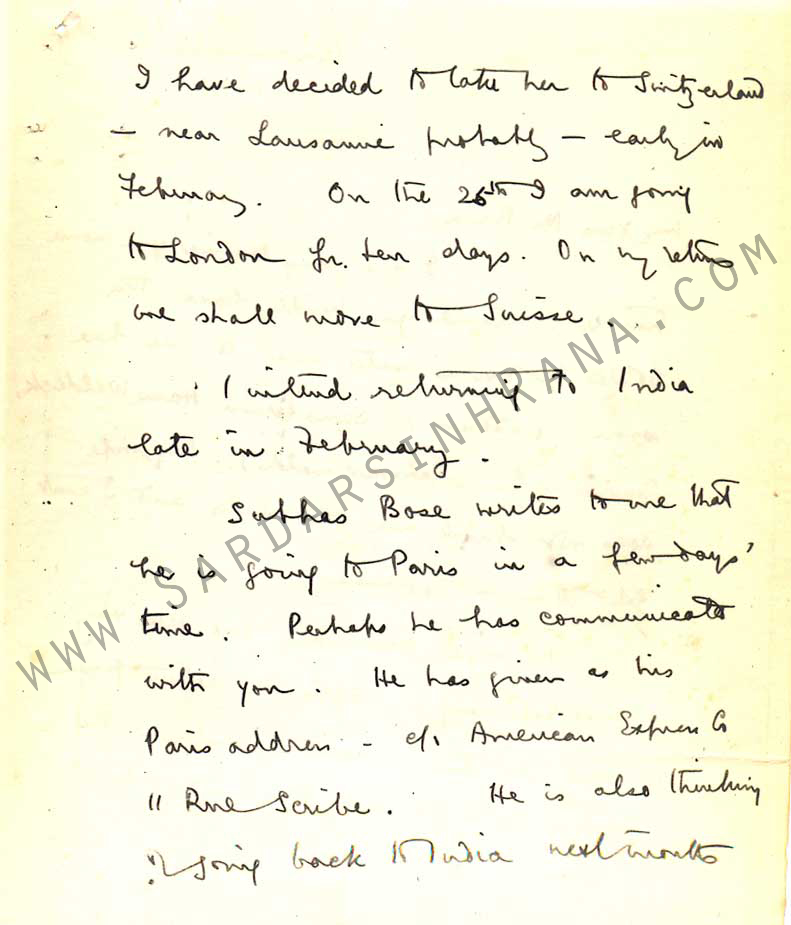 I have decided to take her to Switzerland
– near Lausanne probably – early in
February. On the 26th I am going
to London for ten days. On my return
we shall move to Suisse.
I intend returning to India
late in February.
Subhas Bose writes to me that
he is going to Paris in a few days'
time. Perhaps he has communicated
with you. He has given as his
Paris address – c/o American Express Co
11 Rue Scribe. He is also thinking
of going back to India next month
WWW.SARDARSINHRANA.COM